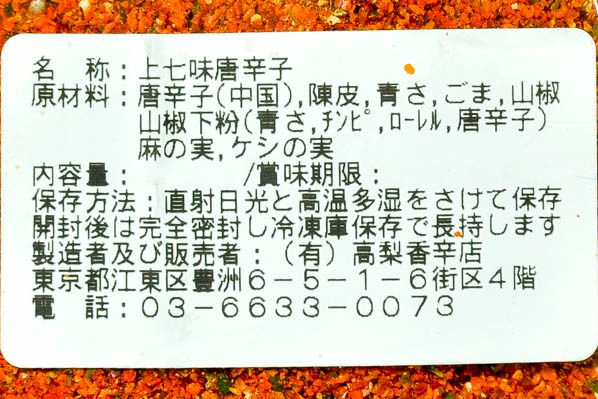 名　称：上七味唐辛子
原材料：唐辛子(中国),陳皮,青さ,ごま,山椒
山椒下粉(青さ,ﾁﾝﾋﾟ,ﾛｰﾚﾙ,唐辛子)
麻の実,ケシの実
内容量：　　　　/賞味期限：
保存方法：直射日光と高温多湿をさけて保存
開封後は完全密封し冷凍庫保存で長持します
製造者及び販売者：(有)高梨香辛店
東京都江東区豊洲６－５－１－６街区４階
電　話：０３－６６３３－００７３